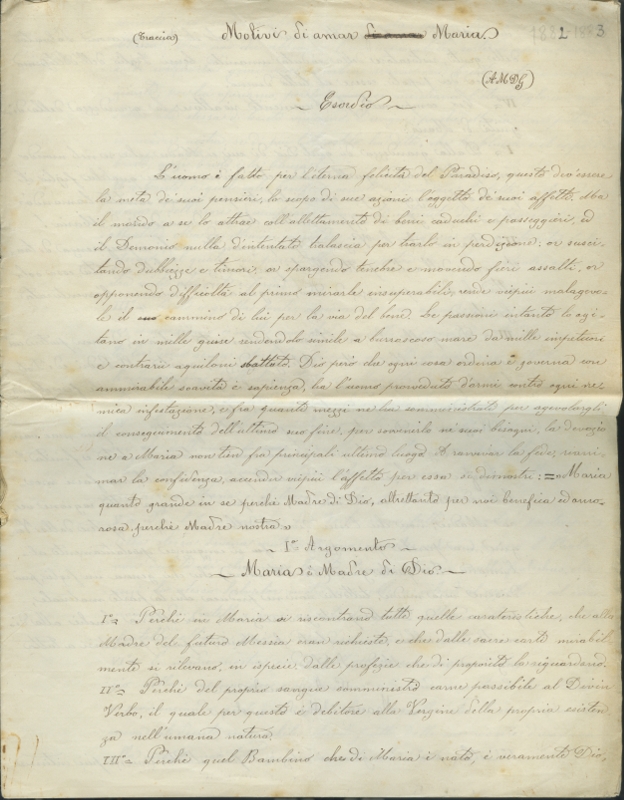 (Traccia) Motivi di amar Maria 1882-1883
(AMDG)
Esordio
L'uomo è fatto per l'eterna felicità del Paradiso, questo dev'essere
la meta de' suoi pensieri, lo scopo di sue azioni l'oggetto di suoi affetti. Ma
il mondo a se lo attrae coll'allettamento di beni caduchi e passeggieri, ed
il Demonio nulla d'intentato tralascia per trarlo in perdizione: or susci-
tando dubbiezze e timori, or spargendo tenebre e movendo fieri assalti, or
opponendo difficoltà al primo mirarle insuperabili, rende viepiù malagevo-
le il cammino di lui per la via del bene. Le passioni intanto lo agi-
tano in mille guise rendendolo simile a burrascoso mare da mille impetuosi
e contrarii aquiloni sbattuto. Dio però che ogni cosa ordina e governa con
ammirabile soavità e sapienza, ha l'uomo proveduto d'armi contro ogni ne-
mica infestazione, e fra quanti mezzi ne ha somministrati per agevolargli
il conseguimento dell'ultimo suo fine, per sovvenirlo ne' suoi bisogni, la devozio
ne a Maria non tien fra principali ultimo luogo. A ravvivar la fede, reani-
mar la confidenza, accender viepiù l'affetto per essa si dimostri: = Maria
quanto grande in se perchè Madre di Dio, altrettanto per noi benefica ed amo-
rosa perchè Madre nostra.
I° Argomento
Maria è Madre di Dio.
I° Perchè in Maria si riscontrano tutte quelle caratteristiche, che alla
Madre del futuro Messia eran richieste, e che dalle sacre carte mirabil-
mente si rilevano, in ispecie dalle profezie che di proposito la riguardano.
II° Perchè del proprio sangue somministrò carne passibile al Divin
Verbo, il quale per questo è debitore alla Vergine della propria esisten
za nell'umana natura.
III° Perchè quel Bambino che di Maria è nato, è veramente Dio,